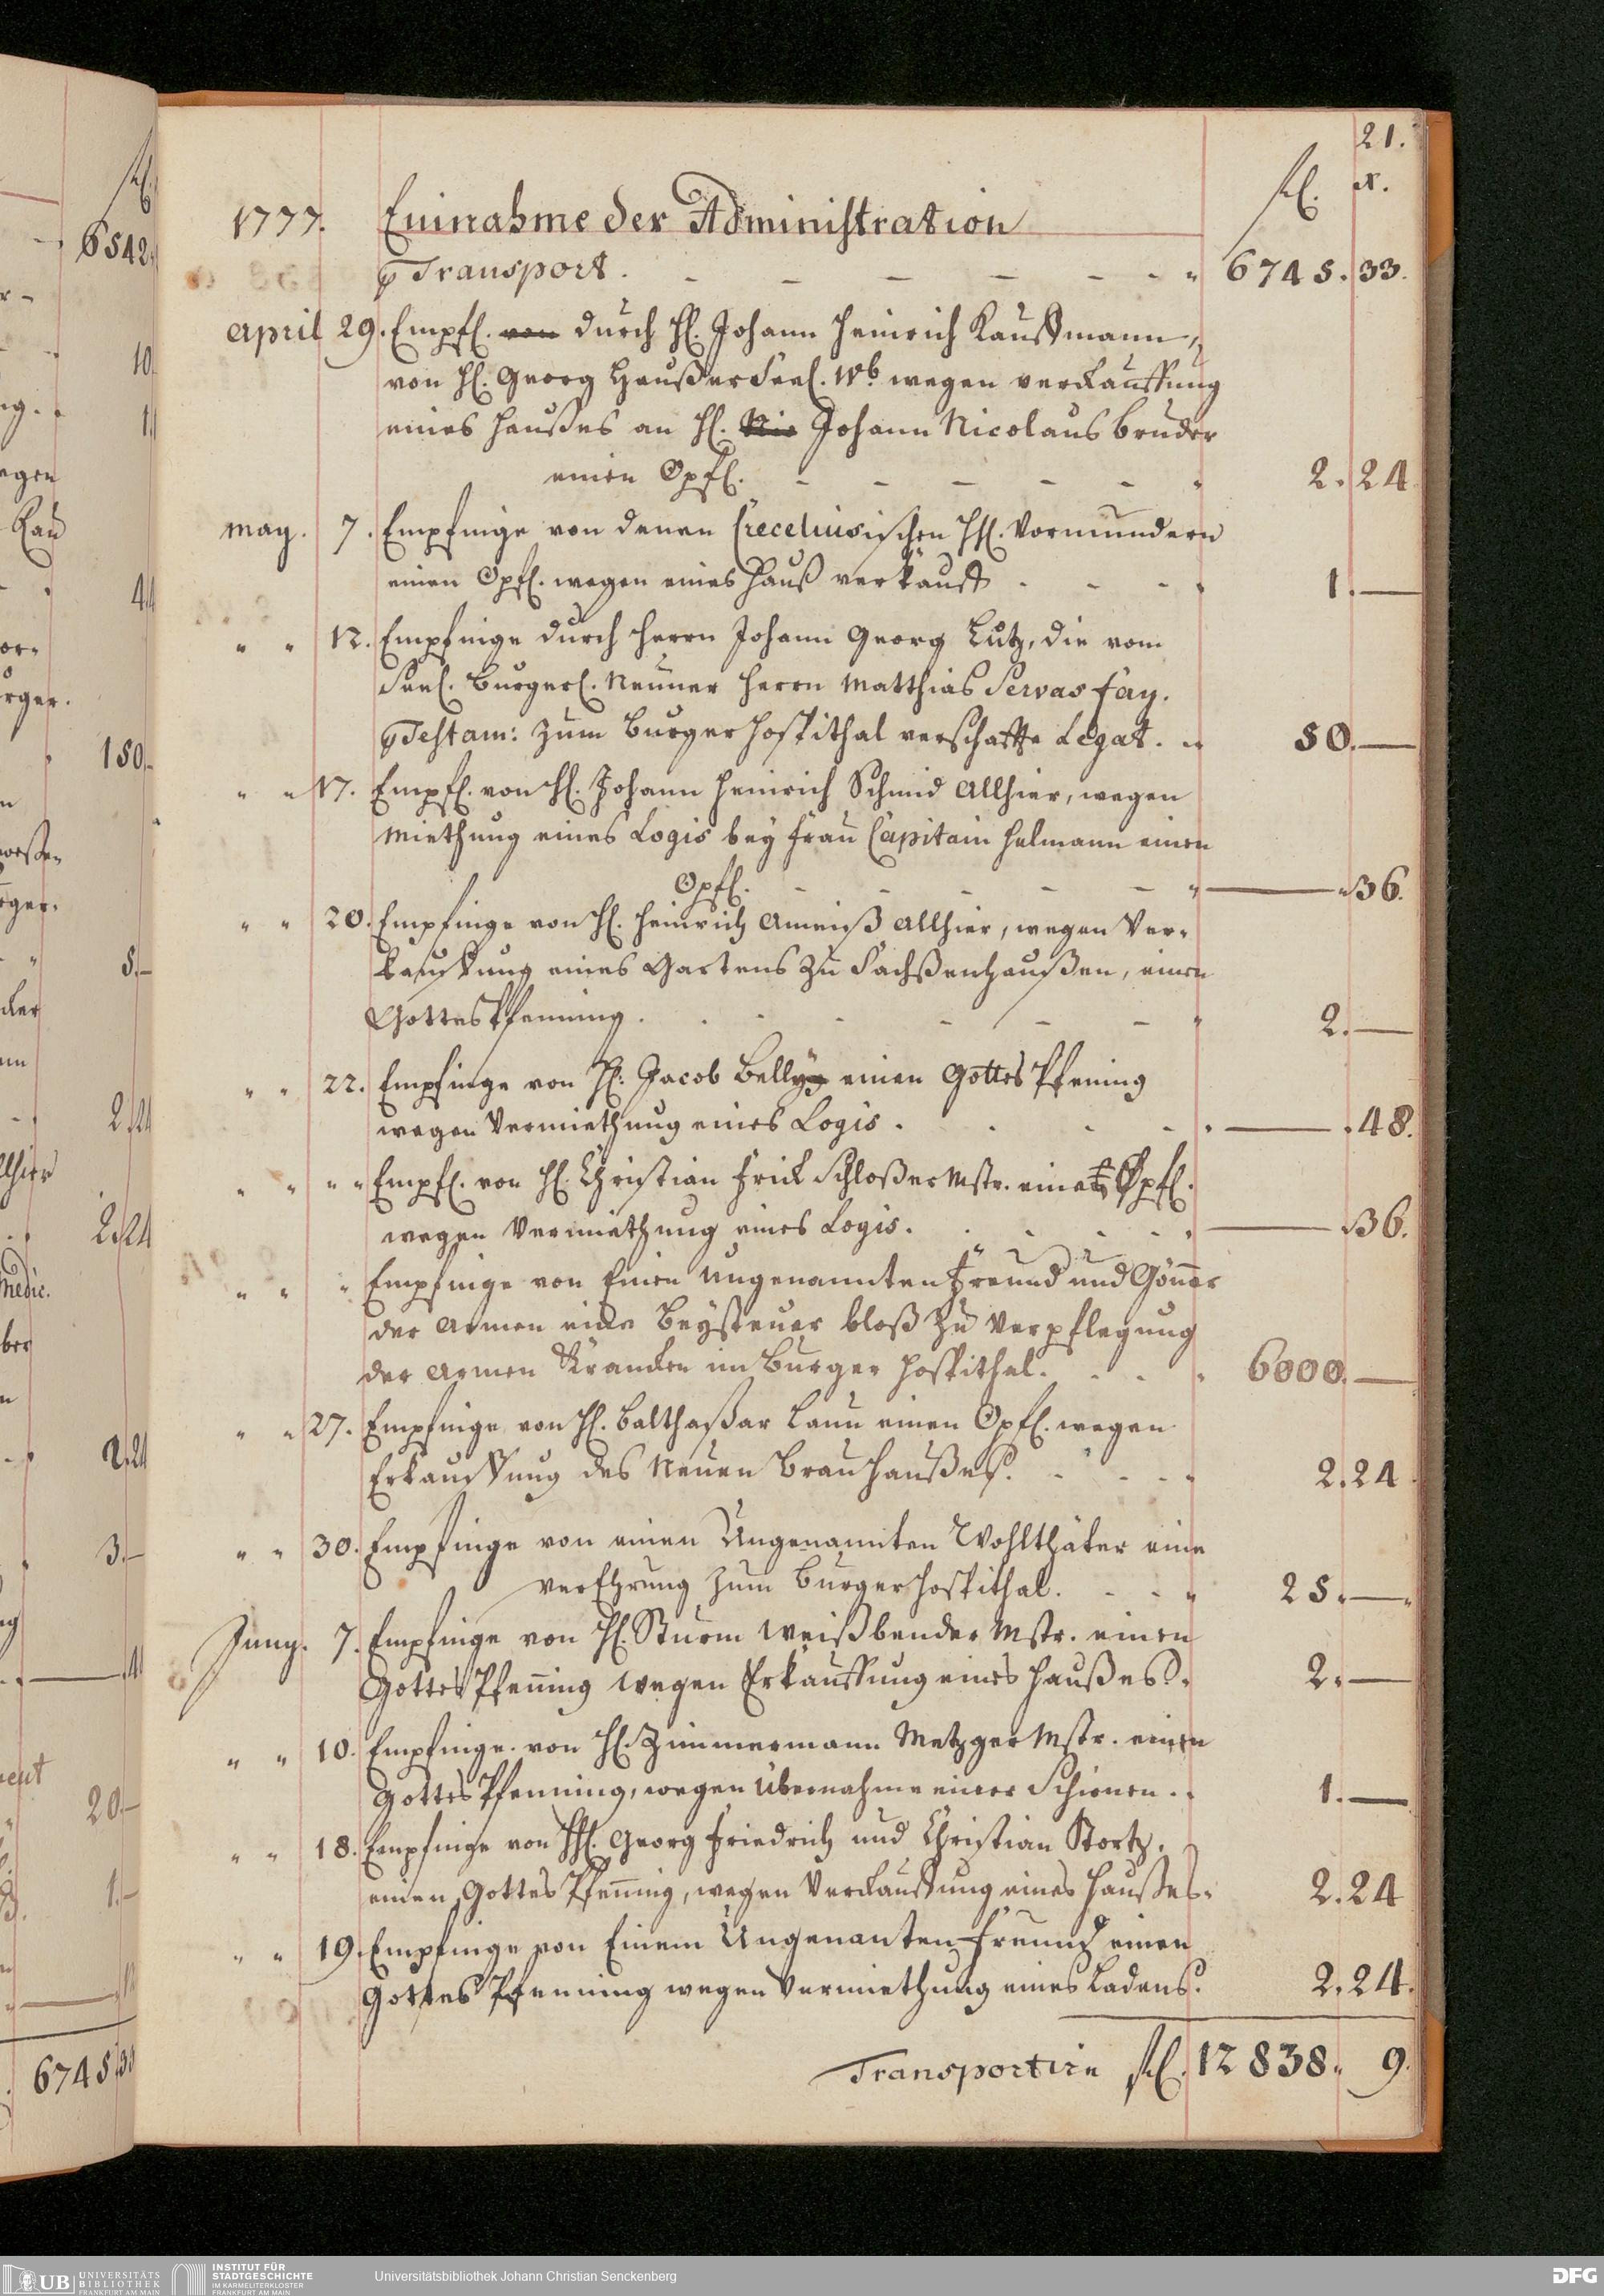 21.
fl. x.
1777. Einnahme der Administration
℘ Transport. 6745. 33.
April 29. Empfl. von durch Hl. Johann Heinrich Kauffmann,
von Hl. Georg Haußer Seel. Wb. wegen verkauffung
eines Haußes an Hl. Nic Johann Nicolaus Bruder
einen Gpfl. 2. 24
May. 7. Empfinge von denen Creceliusischen HHl. Vormündern
einen Gpfl. wegen eines Hauß verkauff 1. —
" " 12. Empfinge durch Herrn Johann Georg Lutz, die vom
Seel. Burgerl. Neuner Herrn Matthias Servas Fay.
℘ Testam: zum Burger Hospithal verschaffte Legat. 50. —
" " 17. Empfl. von Hl. Johann Heinrich Schmid Allhier, wegen
Miethung eines Logis bey Frau Capitain Helmann einen
Gpfl. — " 36.
" " 20. Empfinge von Hl. Heinrich Ameiß Allhier, wegen Ver-
kauffung eines Gartens zu Sachßenhaußen, einen
Gottes Pfenning. 2. —
" " 22. Empfinge von Hl: Jacob Belly einen Gottes Pfening
wegen Vermiethung eines Logis. — . 48.
" " " " Empfl. von Hl. Christian Frick Schloßer Mstr. einen Gpfl.
wegen Vermiethung eines Logis. — " 36.
" " " Empfinge von Einen Ungenannten Freund und Gönner
der Armen eine Beysteuer bloß zu Verpflegung
der Armen Krancken im Burger Hospithal. 6000. —
" " 27. Empfinge von Hl. Balthaßar Laun einen Gpfl. wegen
Erkauffung des Neuen Brau Haußes. 2. 24
" " 30. Empfinge von einen Ungenannten Wohlthäter eine
verEhrung zum Burger Hospithal. 25. —
Juny. 7. Empfinge von Hl. Sturm Weißbender Mstr. einen
Gottes Pfenning wegen Erkauffung eines Haußes. 2. —
" " 10. Empfinge von Hl. Zimmermann Metzger Mstr. einen
Gottes Pfenning, wegen Übernahme einer Schirnen. 1. —
" " 18. Empfinge von HHl. Georg Friedrich und Christian Stortz,
einen Gottes Pfenning, wegen Verkauffung eines Haußes. 2. 24
" " 19. Empfinge von Einem Ungenanten Freund einen
Gottes Pfenning wegen Vermiethung eines Ladens. 2. 24.
Transportire fl. 12838. 9.
6542.
10.
150.
6745 33
UB UNIVERSITÄTS
BIBLIOTHEK
FRANKFURT AM MAIN
INSTITUT FÜR
STADTGESCHICHTE
IM KARMELITERKLOSTER
FRANKFURT AM MAIN
Universitätsbibliothek Johann Christian Senckenberg
DFG